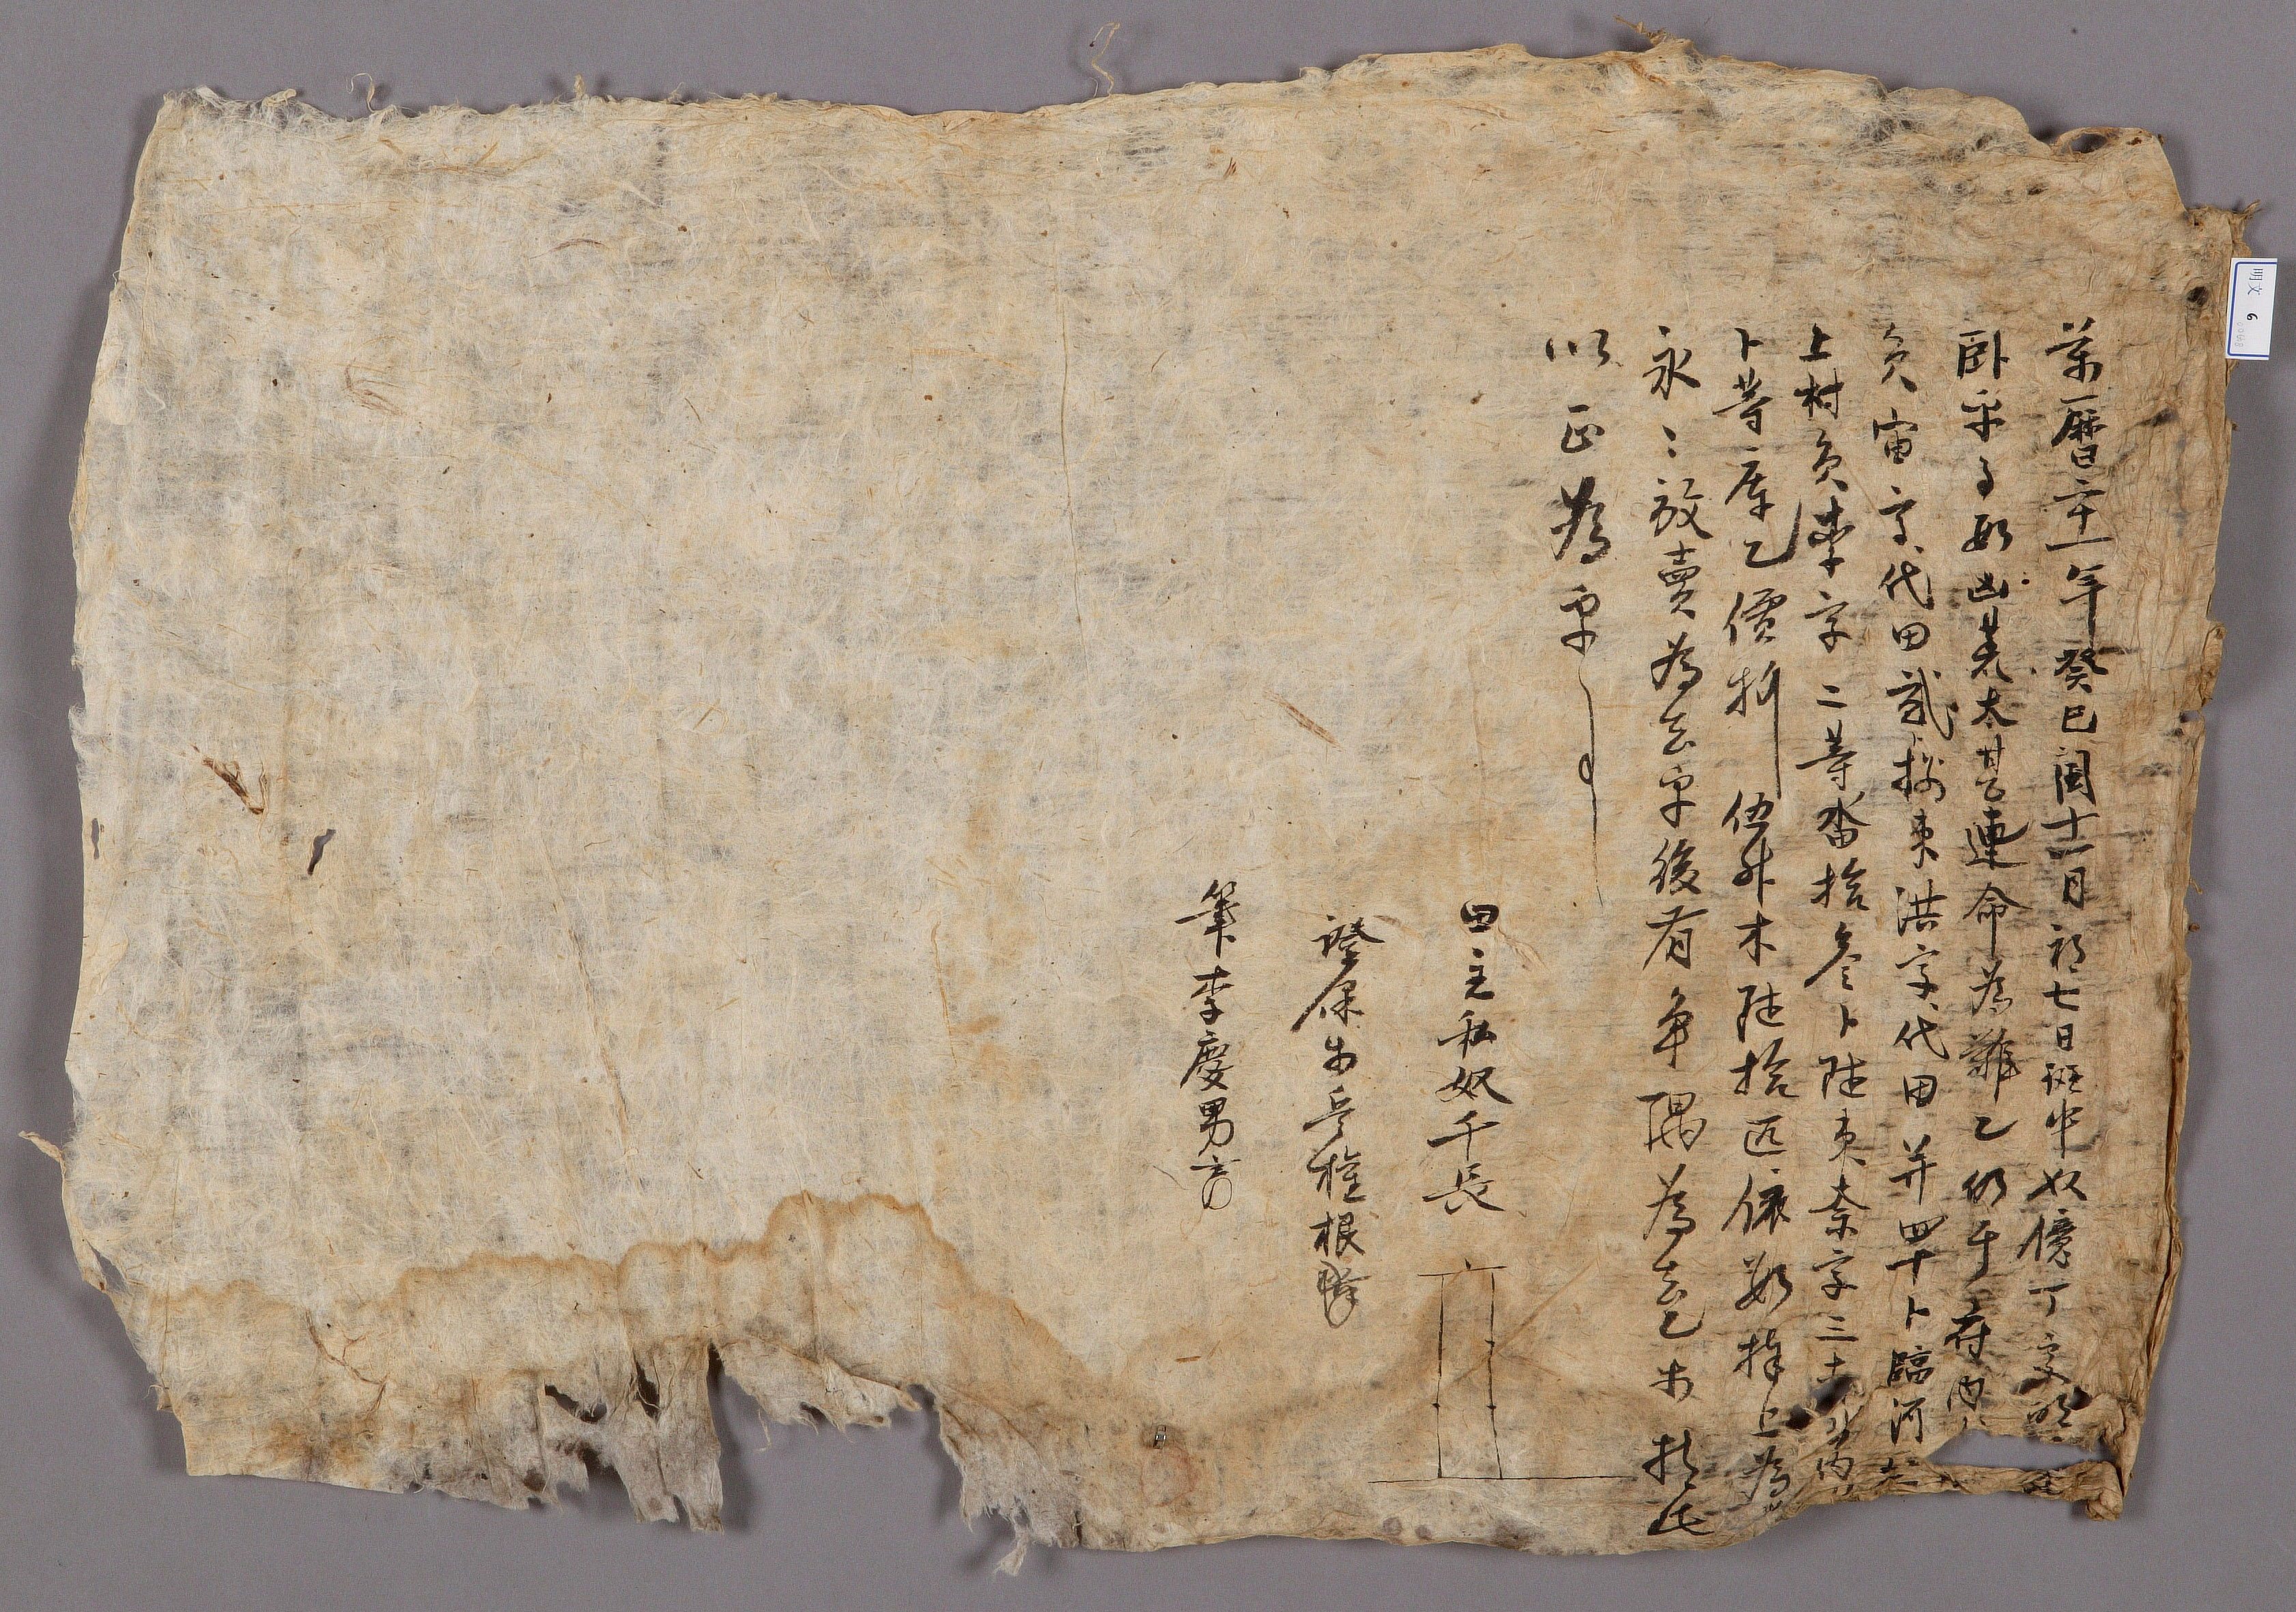 萬曆二十一年癸巳閏十一月初七日班中奴億丁處明
臥乎事段凶荒太甚連命爲難乙仍于府內
員宙字代田貳拾束洪字代田幷四十卜臨河
上村員李字二等畓拾參卜陸束柰字三十內
卜等庫乙價折伍升木陸拾匹依數捧上爲
永〻放賣爲去乎後有爭隅爲去乙才持此
以正爲乎
田主私奴千長
證保步兵權根
筆李慶男
明文 6